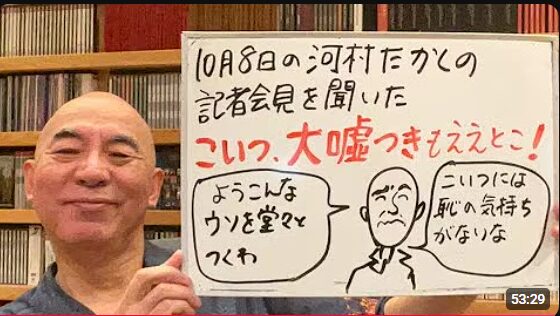 10月8日の河村たかしの
記者会見を聞いた
こいつ、大嘘つきもええとこ!
ようこんな
ウソを堂々と
つくわ
こいつには
恥の気持ち
がないな
53:29